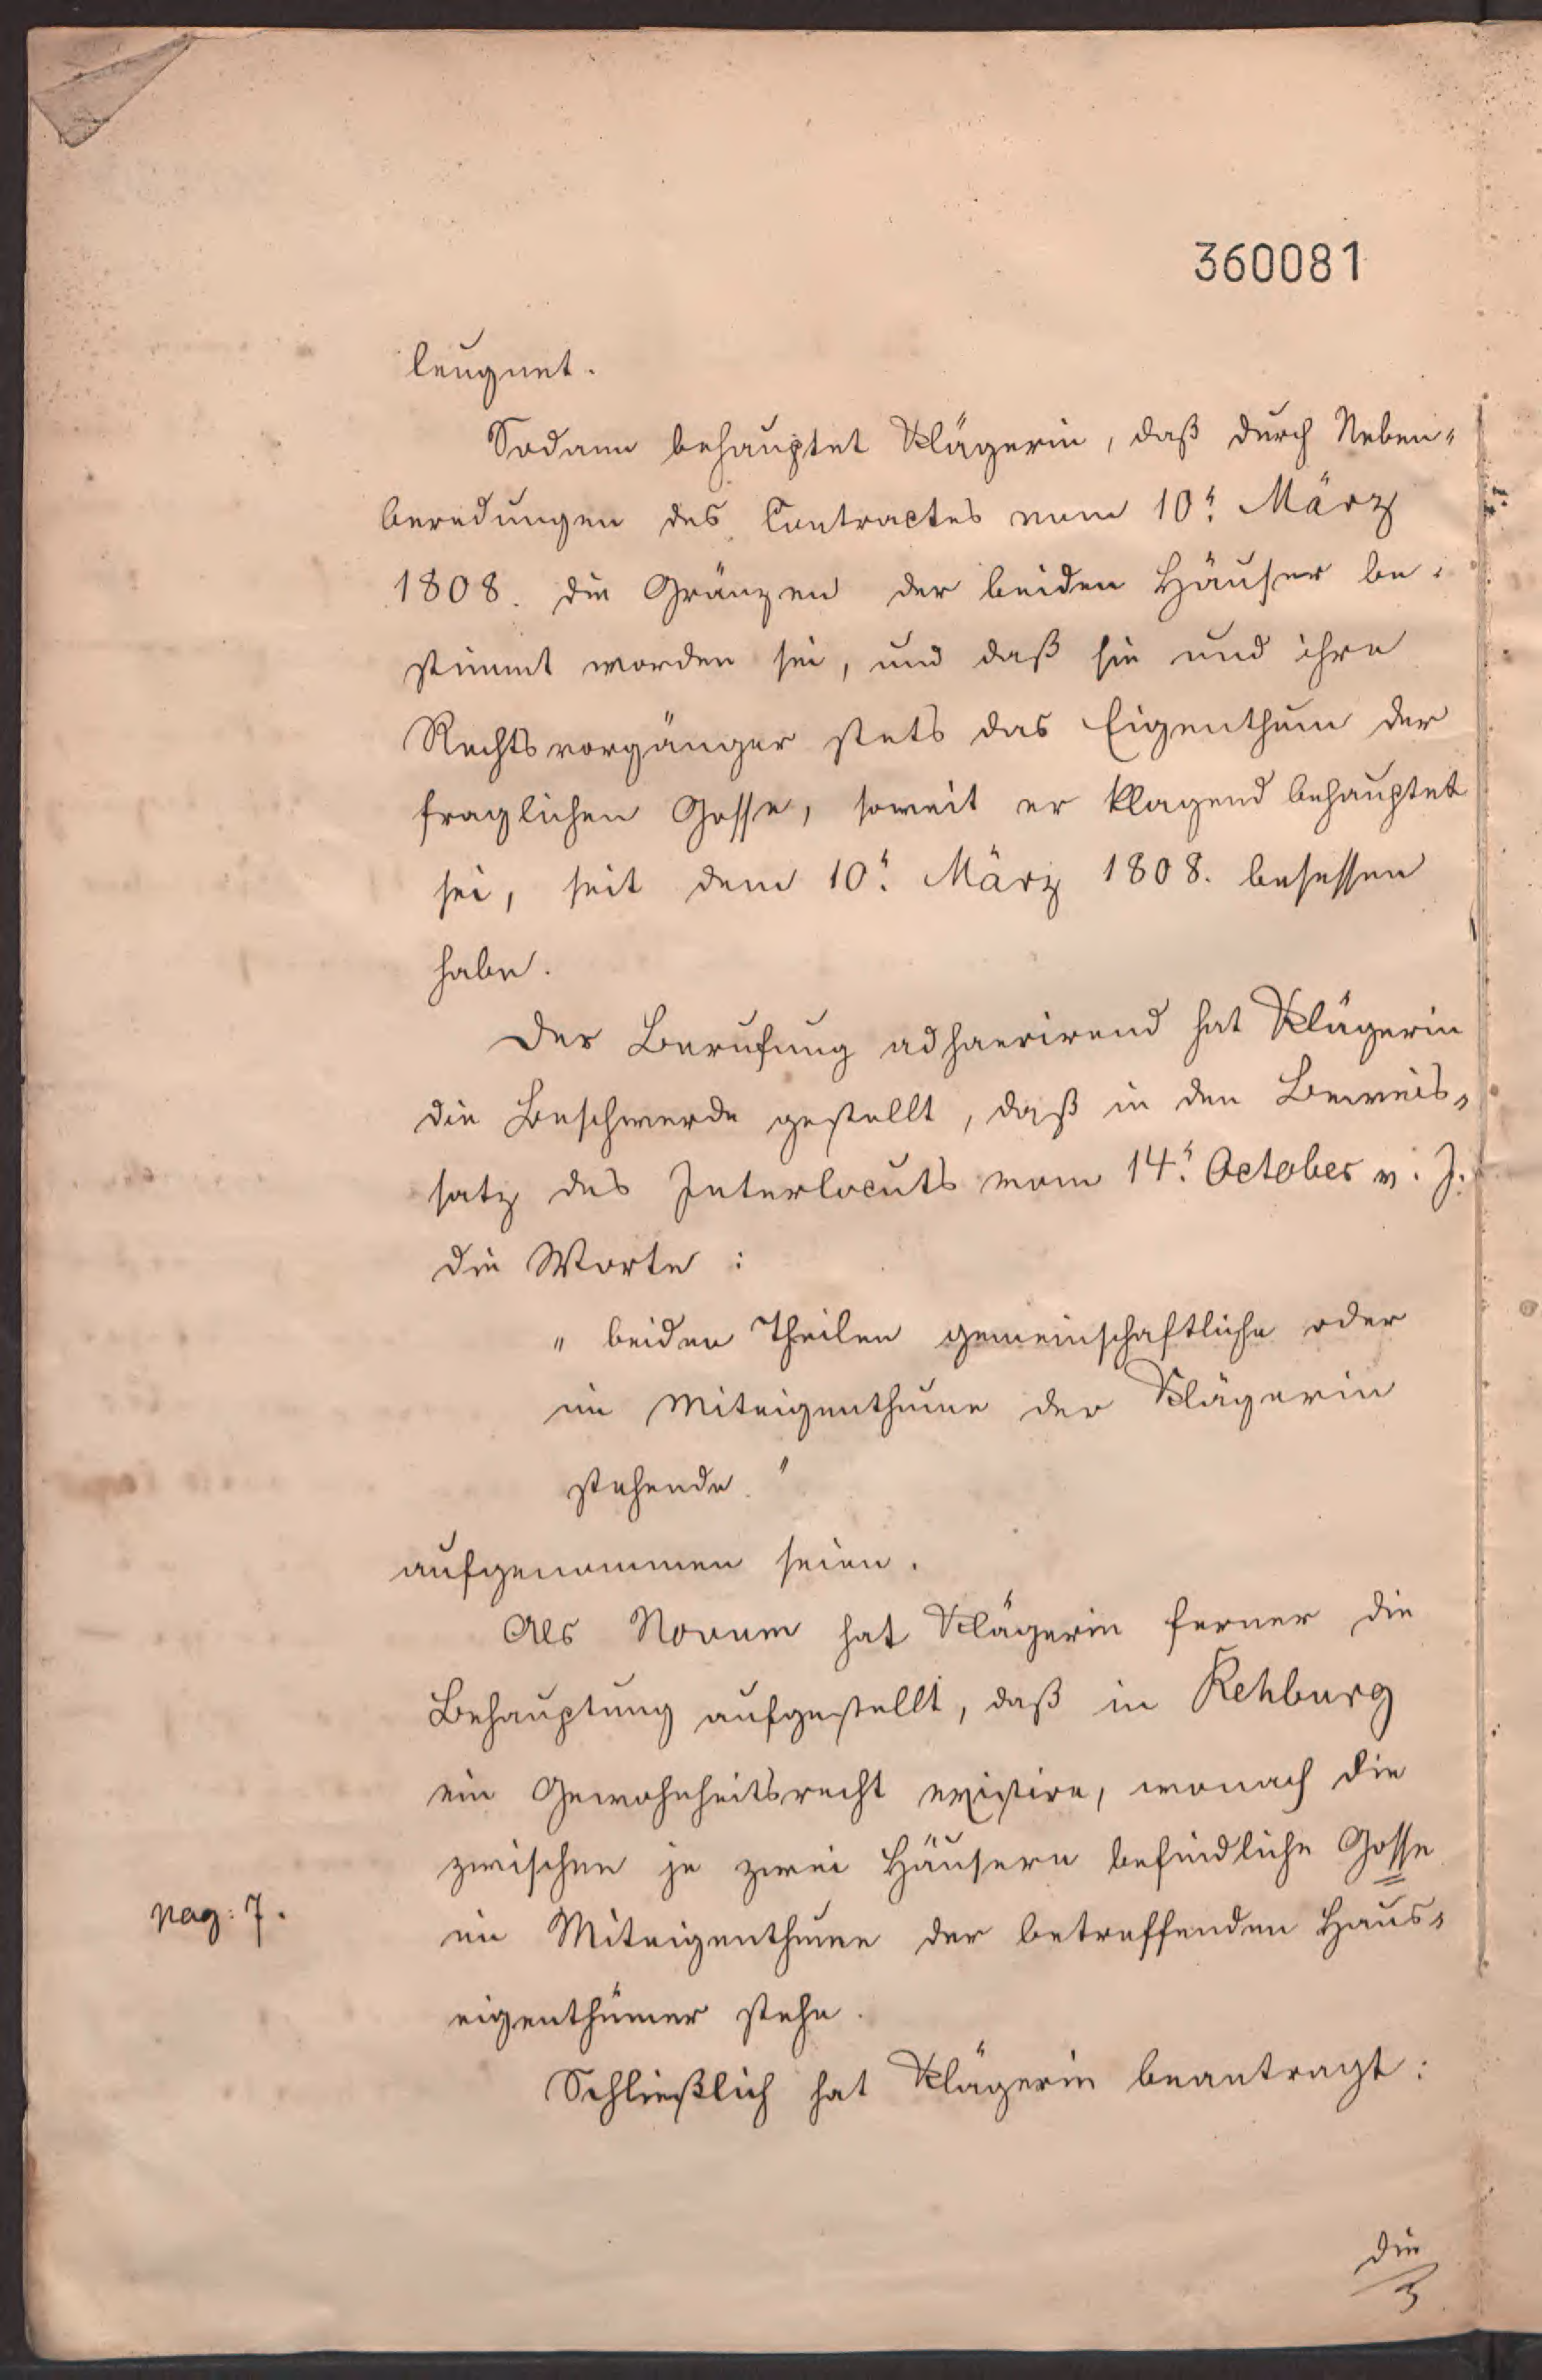 360081
leugnet.
Sodann behauptet Klägerin, daß durch Neben-
beredungen des Contractes vom 10t. März
1808. die Gränzen der beiden Häuser be-
stimmt worden sei, und daß sie und ihre
Rechtsvorgänger stets das Eigenthum der
fraglichen Gosse, soweit er klagend behauptet
sei, seit dem 10t. März 1808. besessen
habe.
Der Berufung adhaerirend hat Klägerin
die Beschwerde gestellt, daß in den Beweis-
satz des Interlocuts vom 14t. October v. J.
die Worte:
" beiden Theilen gemeinschaftliche oder
im Miteigenthume der Klägerin
stehende. "
aufgenommen seien.
Als Novum hat Klägerin ferner die
Behauptung aufgestellt, daß in Rehburg
ein Gewohnheitsrecht existire, wonach die
zwischen je zwei Häusern befindliche Gosse
pag: 7.
im Miteigenthume der betreffenden Haus-
eigenthümer stehe.
Schließlich hat Klägerin beantragt:
die